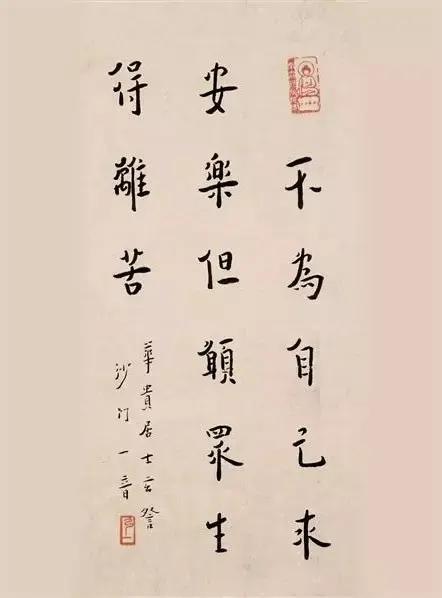 不為自己求
安樂但願眾生
得離苦
華貴居士玄詧
沙門一音